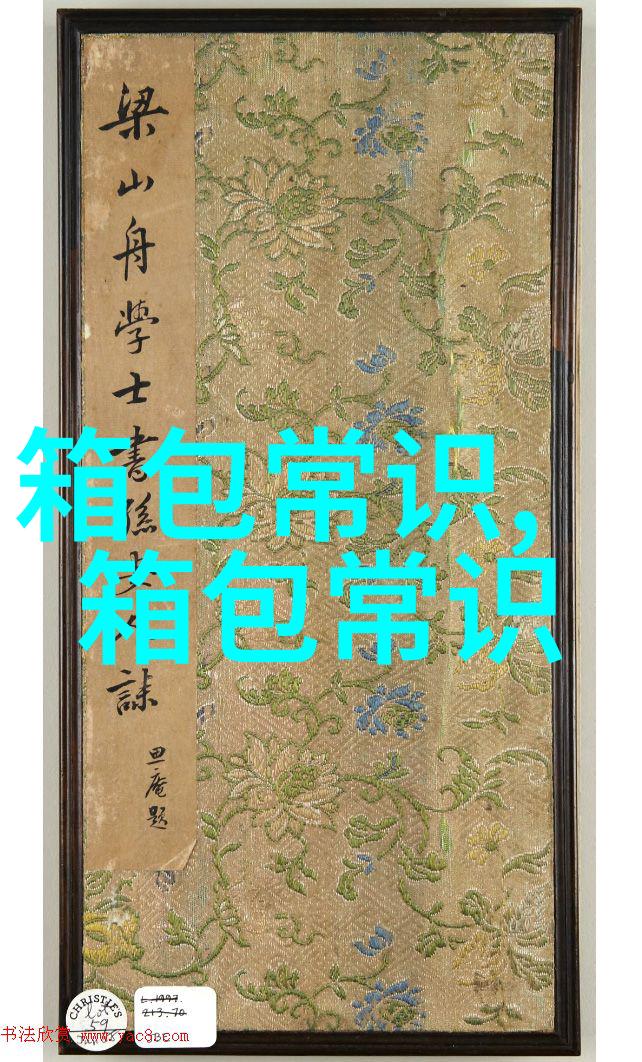 梁山舟學士書孫夫人誄
思庵題
箱包常识,
箱包常识
CHRISTIE'S
Lot
59
L.1997.
213.70
书法欣赏 www.yac8.com